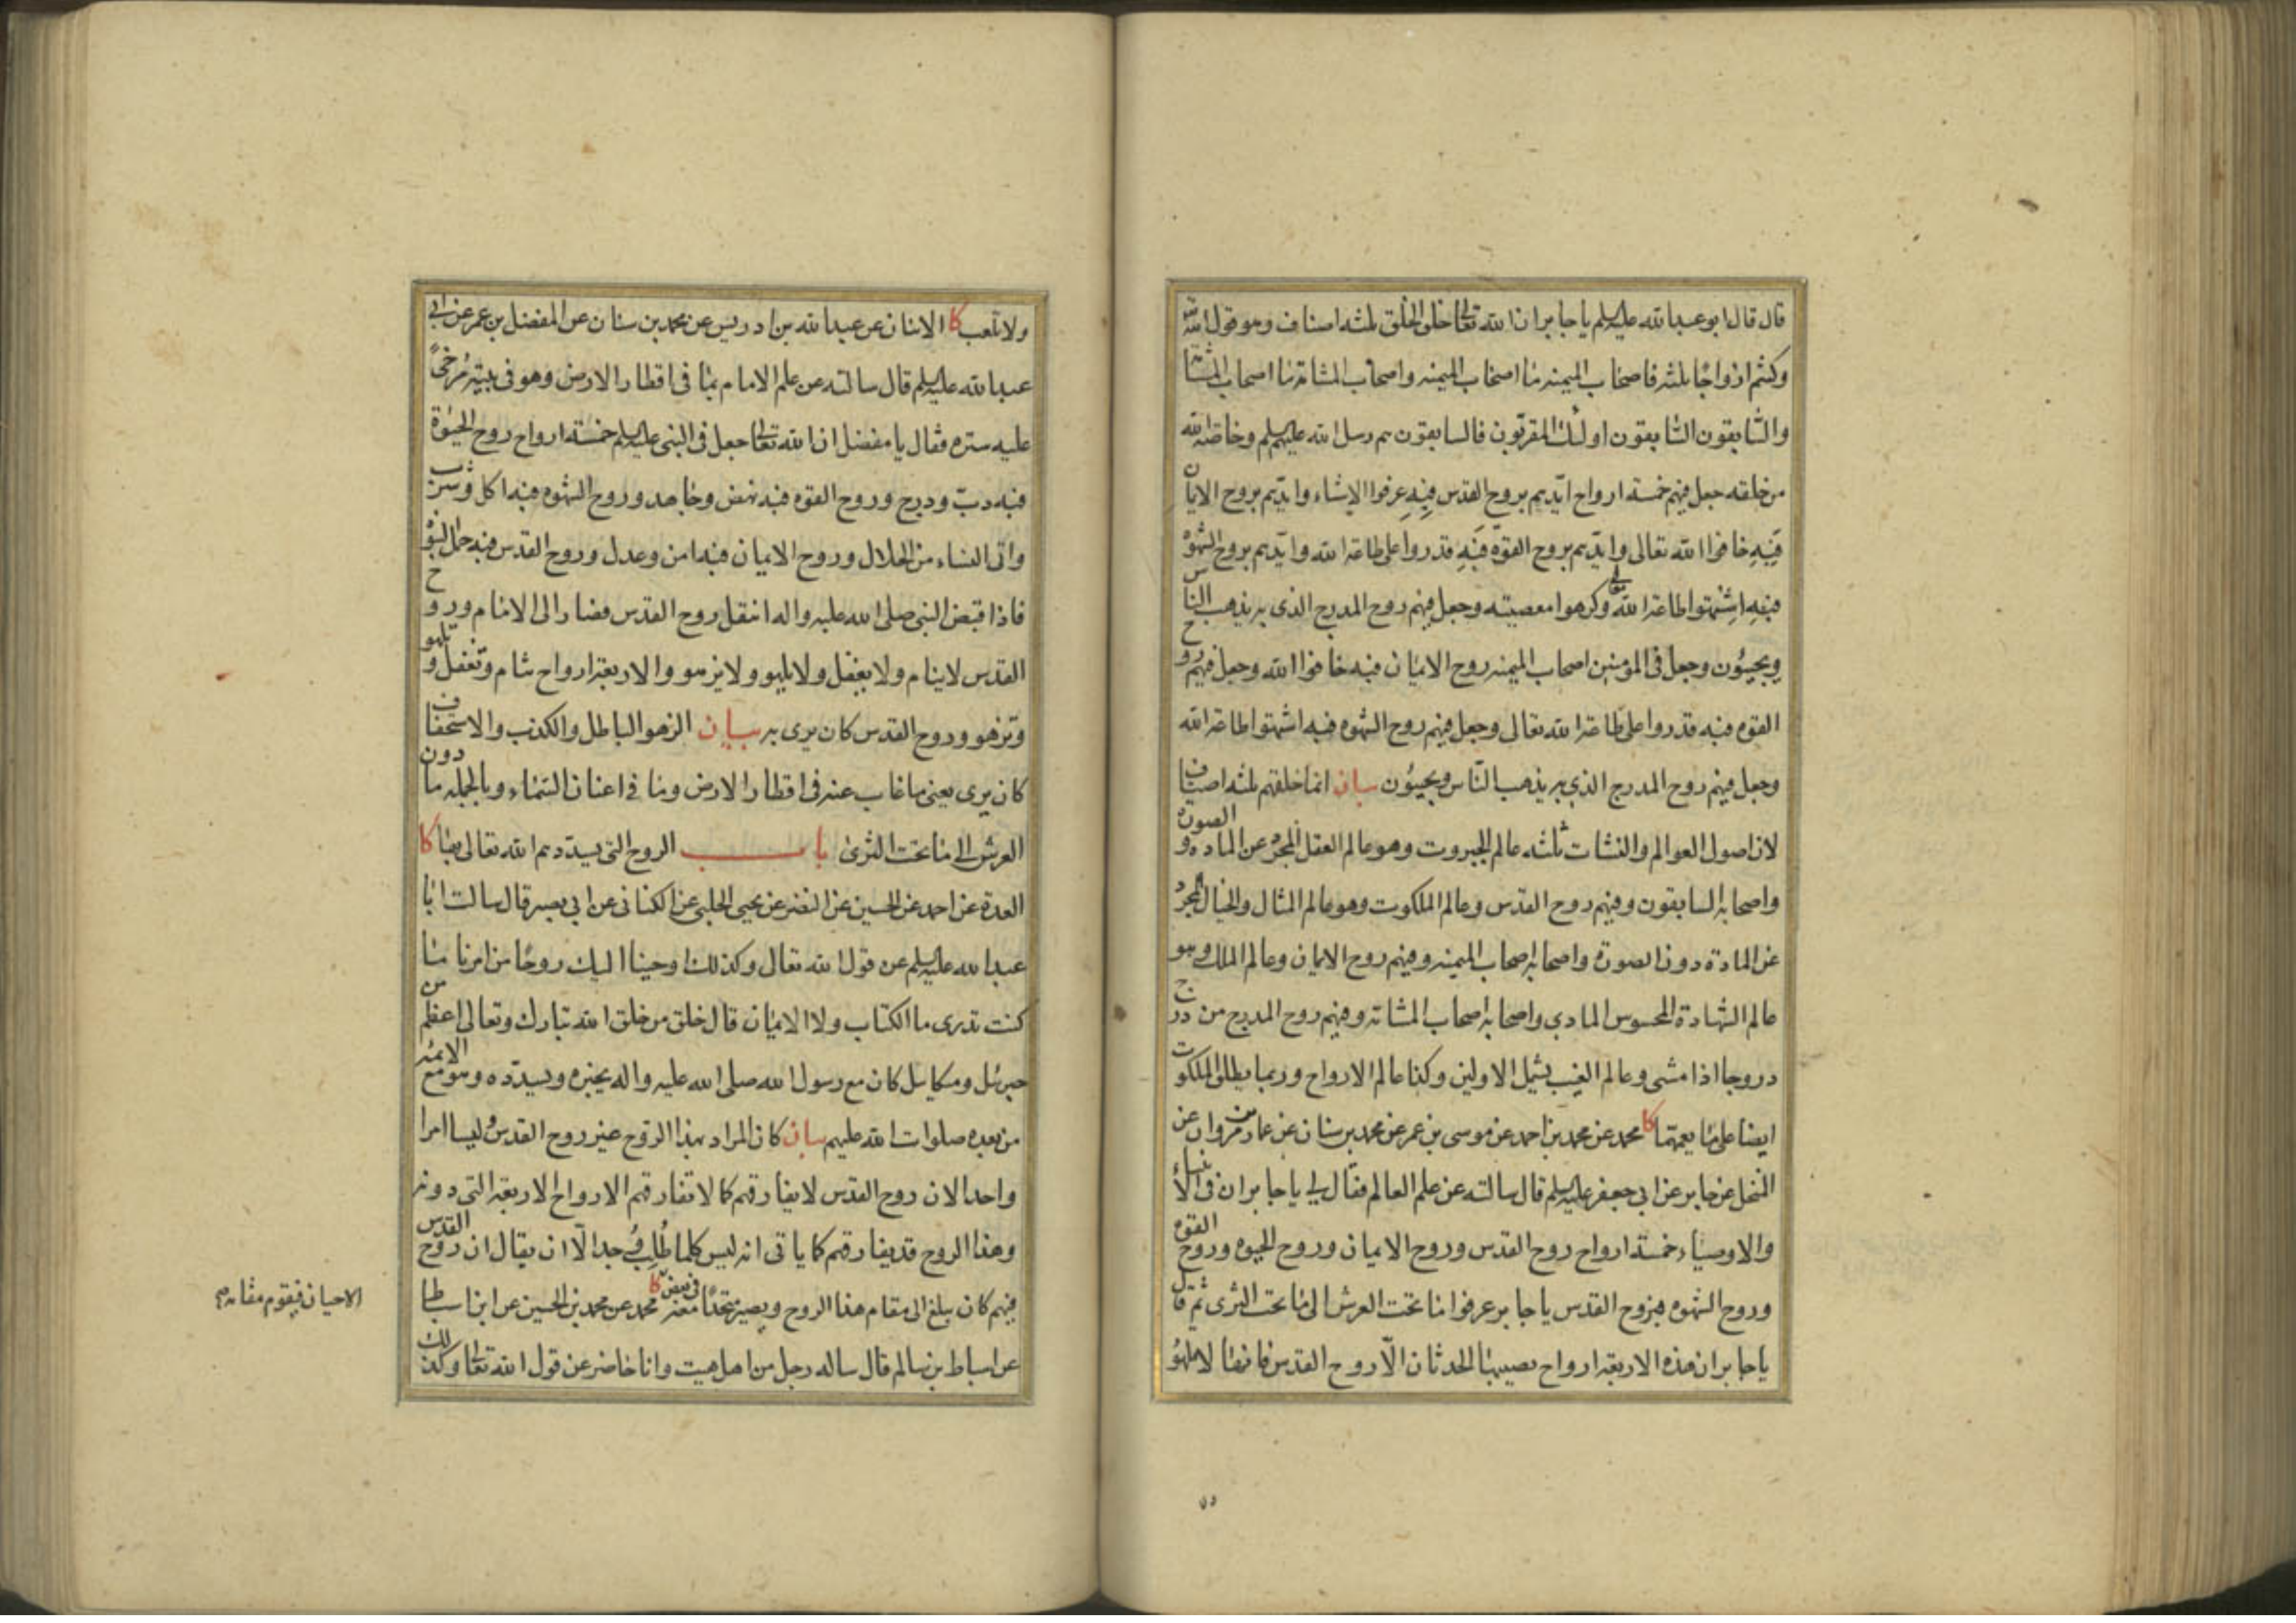 قال قال ابو عبد الله عليه السلم يا جابر ان الله تعالى خلق الخلق ثلثه اصناف وهو قول الله
وكنتم ازواجًا ثلثه فاصحاب الميمنه ما اصحاب الميمنه واصحاب المشأمة ما اصحاب المشأمة
والسّابقون السّابقون اولئك المقرّبون فالسابقون هم رسل الله عليهم السلم وخاصّة الله
من خلقه جعل فيهم خمسة ارواح ايّدهم بروح القدس فبِهِ عرفوا الاشياء وايّدهم بروح الايمان
فَبِهِ خافوا الله تعالى وايّدهم بروح القوّه فَبِهِ قدروا على طاعة الله وايّدهم بروح الشهوه
فبِهِ اشتهوا طاعة الله تعالى وكرهوا معصيته وجعل فيهم روح المدرج الذى به يذهب الناس
ويجيئون وجعل فى المومنين اصحاب الميمنه روح الايمان فبه خافوا الله وجعل فيهم روح
القوه فبه قدروا على طاعة الله تعالى وجعل فيهم روح الشهوه فبه اشتهوا طاعة الله
وجعل فيهم روح المدرج الذي به يذهب النّاس ويجيئون بيان انما خلقهم ثلثه اصناف
لان اصول العوالم والنشات ثلثه عالم الجبروت وهو عالم العقل المجرّد عن الماده والصورة
واصحابه السابقون وفيهم روح القدس وعالم الملكوت وهو عالم المثال والخيال المجرّد
عن المادة دون الصورة واصحابه اصحاب الميمنه وفيهم روح الايمان وعالم الملك وهو
عالم الشهادة المحسوس المادي واصحابه اصحاب المشامة وفيهم روح المدرج من درج
دروجا اذا مشى وعالم الغيب يشمل الاولين وكذا عالم الارواح وربما يطلق الملكوت
ايضا على ما يعمهما كا محمد عن محمد بن احمد عن موسى بن عمر عن محمد بن سنان عن عمار بن مروان عن
المنخل عن جابر عن ابي جعفر عليه السلم قال سالته عن علم العالم فقال لي يا جابر ان فى الانبياء
والاوصياء خمسة ارواح روح القدس وروح الايمان وروح الحيوه وروح القوه
وروح الشهوه فبروح القدس يا جابر عرفوا ما تحت العرش الى ما تحت الثرى ثم قال
يا جابر ان هذه الاربعة ارواح يصيبها الحدثان الّا روح القدس فانها لا تلهُو
ولا تلعب كا الاثنان عن عبد الله بن ادريس عن محمد بن سنان عن المفضل بن عمر عن ابي
عبد الله عليه السلم قال سالته عن علم الامام بما فى اقطار الارض وهو فى بيته مُرخىً
عليه ستره فقال يا مفضل ان الله تعالى جعل فى النبى عليه السلم خمسة ارواح روح الحيوة
فبه دبّ ودرج وروح القوه فبه نهض وجاهد وروح الشهوه فبه اكل وشرب
واتى النساء من الحلال وروح الايمان فبه امن وعدل وروح القدس فبه حمل النبوّة
فاذا قبض النبى صلى الله عليه واله انتقل روح القدس فصار الى الامام وروح
القدس لا ينام ولا يغفل ولا يلهو ولا يزهو والاربعة ارواح تنام وتغفل وتلهو
وتزهو وروح القدس كان يرى به بيان الزهو الباطل والكذب والاستخفاف
كان يرى يعنى ما غاب عنه فى اقطار الارض وما فى اعنان السّماء وبالجمله ما دون
العرش الى ما تحت الثرى باب الروح التى يسدّدهم الله تعالى بها كا
العدة عن احمد عن الحسين عن النضر عن يحيى الحلبى عن الكنانى عن ابى بصير قال سالت ابا
عبد الله عليه السلم عن قول الله تعالى وكذلك اوحينا اليك روحًا من امرنا ما
كنت تدرى ما الكتاب ولا الايمان قال خلق من خلق الله تبارك وتعالى اعظم من
جبرئل وميكايل كان مع رسول الله صلى الله عليه واله يخبره ويسدّده وهو مع الائمه
من بعده صلوات الله عليهم بيان كان المراد بهذا الروح غير روح القدس وليسا امرا
واحدا لان روح القدس لا يفارقهم كما لا تفارقهم الارواح الاربعة التى دونه
وهذا الروح قد يفارقهم كما ياتى انه ليس كلما طُلِب وُجد الّا ان يقال ان روح القدس
فيهم كان يبلغ الى مقام هذا الروح ويصير متحدًا معه فى بعض كا محمد عن محمد بن الحسين عن ابن اسباط
الاحيان فيقوم مقامه
عن اسباط بن سالم قال ساله رجل من اهل هيت وانا حاضر عن قول الله تعالى وكذلك